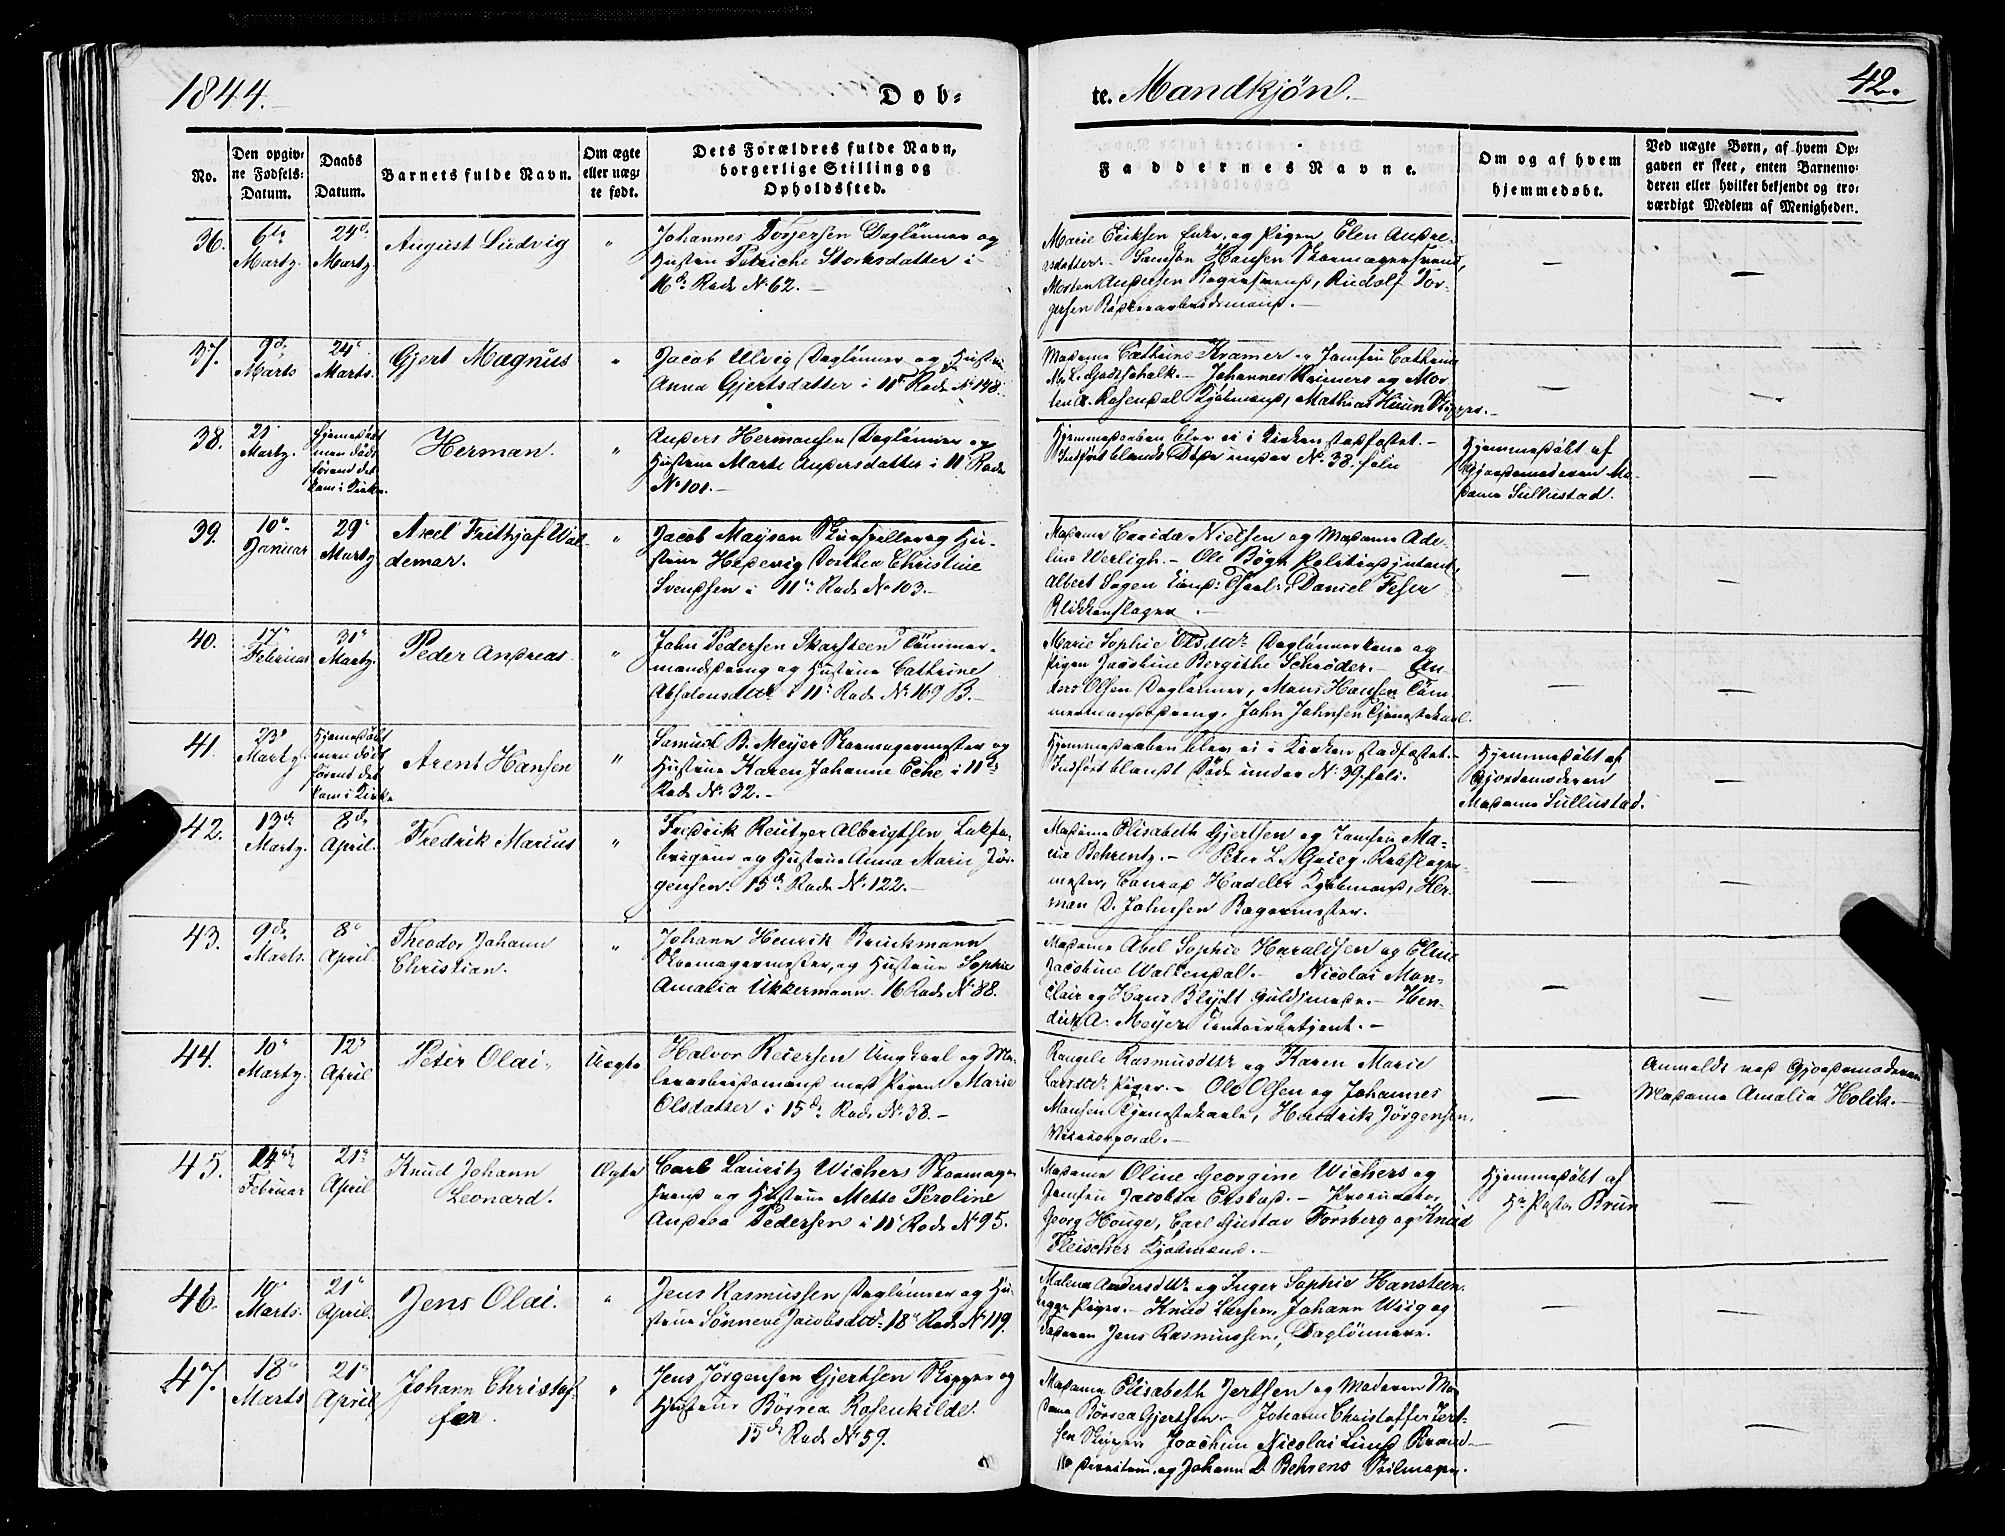 1844.
Dob-
te. Mandkjøn.
42.
No.
Den opgiv-
ne Fødsels-
Datum.
Daabs
Datum.
Barnets fulde Navn.
Om ægte
eller uæg-
te født.
Dets Forældres fulde Navn,
borgerlige Stilling og
Opholdssted.
Faddernes Navne.
Om og af hvem
hjemmedøbt.
Ved uægte Børn, af hvem Op-
gaven er skeet, enten Barnemo-
deren eller hvilket bekjendt og tro-
værdigt Medlem af Menigheden.
36.
6te
Martz.
24de
Martz
August Ludvig
"
Johannes Torjersen Daglønner og
Hustru Petriche Storksdatter i
16de Rode No 62.
Marie Eriksen Enke, og Pigen Elen
Samson Hansen Skomagersvend,
Morten Andersen Bagersvend, Rudolf Tor-
gersen
—
—
37.
9de
Marts
24de
Marts.
Gjert Magnus
"
Jacob Ulvig Daglønner og Hustru
Anna Gjertsdatter i 11te Rode No 148.
Madame Cathrine Kramer og Jomfru Cathrine
Johannes Reimers og Mor-
Rosendal Kjøbmænd, Mathias Skipper.
—
—
38.
21
Martz.
Hjemmedøbt
men døde
førend det
kom i Kirke.
Herman.
"
Anders Hermansen Dagløner og
Hustrue Marte Andersdatter i 11te Rode
No 101.
Hjemmedaaben blev ei i Kirken stadfæstet.
Indført blandt Døde under No 38. folio
Hjemmedøbt af
Gjordemoderen Ma-
dame Sullustad.
39.
10de
Januar
29de
Martz
Axel Frithjof Wal-
demar.
"
Jacob Mayson Skuespiller og Hu-
strue Hedevig Dorthea Christine
Svendsen i 11te Rode No 103.
Madame Nielsen og Madame Ade-
line Werligh. Ole Bøgh Politiadjutant,
Albert Sagen Cand: Theol:, Daniel Feser
Blikkenslager
—
—
40.
17de
Februar
31te
Martz.
Peder Andreas
"
John Pedersen Skarsteen Tømmer-
mandsdreng og Hustrue Cathrine
Absalonsdatr i 11te Rode No 169 B.
Marie Sophie Olsdtr Daglønnerkone og
Pigen Jacobine Birgithe Schrøder. An-
ders Olsen Dagløner, Mons Hansen Tøm-
mermandsdreng, John Johnsen Tjenestekarl.
—
—
41.
23de
Martz.
Hjemmedøbt
men døde
førend det
kom i Kirke
Arent Hansen
"
Samuel B. Meyer Skomagermester og
Hustrue Karen Johanne Eche i 11te
Rode No 32.
Hjemmedaaben blev ei i Kirken stadfæstet.
Indført blandt Døde under No 39. folio.
Hjemmedøbt af
Gjordemoderen
Madame Sullustad.
—
42.
13de
Martz.
8de
April.
Fredrik Marius
"
Fredrik Reutzer Albrigtsen
og Hustrue Anna Marie Jør-
gensen. 15de Rode No 122.
Madame Elisabeth Gjertsen og Jomfru Ma-
ria Behrentz. Peter L. Grieg Rebslager-
mester, Conrad Hadeler Kjøbmand, Her-
man D. Johnsen Bagermester.
—
—
43.
9de
Marts.
8de
April
Theodor Johann
Christian.
"
Johann Henrik Bruckmann
Skomagermester, og Hustrue Sophie
Amalia Ukkermann. 16 Rode No 88.
Madame Abel Sophie Haraldsen og Eline
Jacobine Walkendal. Nicolai Mon-
Clair og Hans Blydt Guldsmede. Hen-
drik A. Meyer Contoirbetjent.
—
—
44.
10de
Martz.
12te
April
Peter Olai.
Uægte
Halvor Reiersen Ungkarl og Mu-
rerarbeidsmand med Pigen Marie
Olsdatter i 15de Rode No 38.
Rangele Rasmusdtr og Karen Marie
Larsdtr Piger. Ole Olsen og Johannes
Monsen Tjenestekarle, Hendrik Jørgensen
Vicecorporal.
—
Anmeldt ved Gjordemoderen
Madame Amalia Holck.
45.
14de
Februar
21de
April
Knud Johann
Leonard.
Ægte
Carl Lauritz Wichers Skomager-
svend og Hustrue Mette Peroline
Andrea Pedersen i 11te Rode No 95.
Madame Oline Georgine Wichers og
Jomfru Jacobea
Georg Houge, Carl Gustav Forsberg og Knud
Fleischer Kjøbmænd.
Hjemmedøbt af
Hr. Pastor Brun
—
46.
10de
Marts.
21de
April.
Jens Olai.
"
Jens Rasmussen Dagløner og Hu-
strue Sønneve Jacobsdtr. 18de Rode No 119.
Malena Andersdtr og Inger Sophie Hansteen
begge Piger. Knud Larsen, Johann Wiig og
Faderen Jens Rasmussen, Dagløønnere.
—
—
47.
18de
Marts
21de
April
Johann Christof-
fer.
"
Jens Jørgensen Gjertsen Skipper og
Hustrue Børrea Rosenkilde.
15de Rode No 59.
Madame Elisabeth Jertsen og Moderen Ma-
dame Børrea Gjertsen. Johann Christoffer Jert-
sen Skipper Joachim Nicolai Lund Brand-
directeur, og Johann D. Behrens Seilmager.
—
—